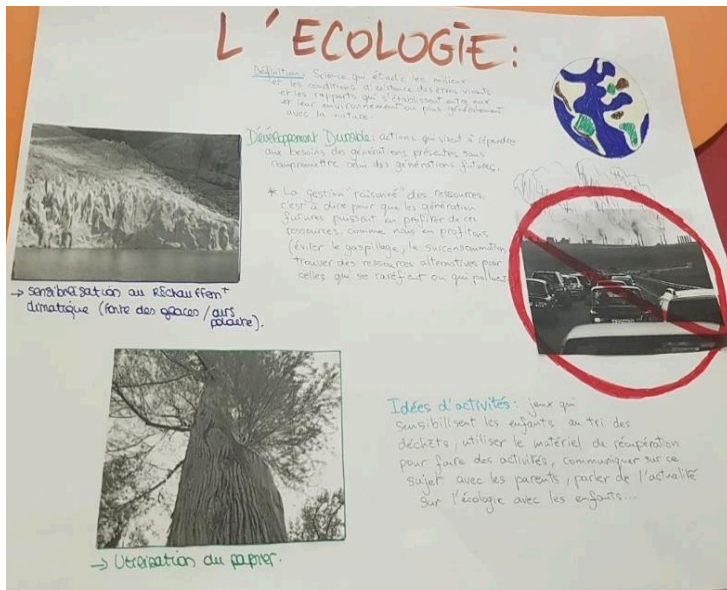 L'ECOLOGIE:
Définition: Science qui étudie les milieux
et les conditions d'existence des êtres vivants
et les rapports qui s'établissent entre eux
et leur environnement ou plus généralement
avec la nature.
Développement Durable: actions qui visent à répondre
aux besoins des générations présentes sans
compromettre celui des générations futures.
* La gestion "raisonné" des ressources.
c'est à dire pour que les génération
futures puissent en profiter de ces
ressources, comme nous en profitons
(éviter le gaspillage, la surconsommation
trouver des ressources alternatives pour
celles qui se raréfient ou qui polluent
→ sensibilisation au Réchauffemt
climatique (fonte des glaces / ours
polaire).
Idées d'activités: jeux qui
sensibilisent les enfants au tri des
déchets, utiliser le matériel de récupération
pour faire des activités, communiquer sur ce
sujet avec les parents, parler de l'actualité
sur l'écologie avec les enfants...
→ Utilisation du papier.